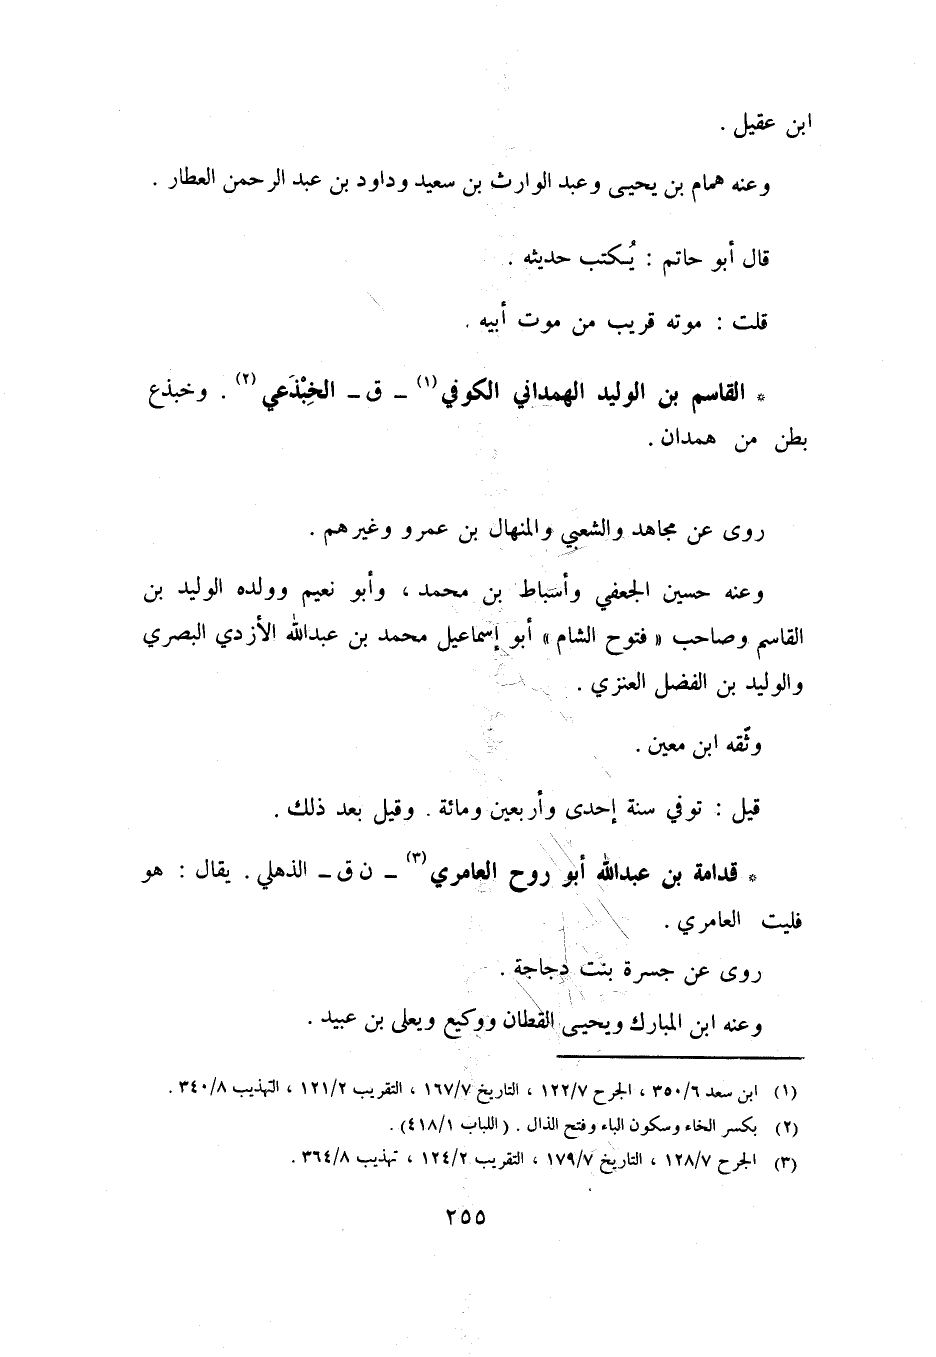 ابن عقيل .
وعنه همام بن يحيى وعبد الوارث بن سعيد وداود بن عبد الرحمن العطار .
قال أبو حاتم : يُكتب حديثه .
قلت : موته قريب من موت أبيه .
* القاسم بن الوليد الهمداني الكوفي (١) ــ ق ــ الخِبْذَعي (٢) . وخبذع
بطن من همدان .
روى عن مجاهد والشعبي والمنهال بن عمرو وغيرهم .
وعنه حسين الجعفي وأسباط بن محمد ، وأبو نعيم وولده الوليد بن
القاسم وصاحب « فتوح الشام » أبو إسماعيل محمد بن عبدالله الأزدي البصري
والوليد بن الفضل العنزي .
وثّقه ابن معين .
قيل : توفي سنة إحدى وأربعين ومائة . وقيل بعد ذلك .
* قدامة بن عبدالله أبو روح العامري (٣) ــ ن ق ــ الذهلي . يقال : هو
فليت العامري .
روى عن جسرة بنت دجاجة .
وعنه ابن المبارك ويحيى القطان ووكيع ويعلى بن عبيد .
(١) ابن سعد ٣٥٠/٦ ، الجرح ١٢٢/٧ ، التاريخ ١٦٧/٧ ، التقريب ١٢١/٢ ، التهذيب ٣٤٠/٨ .
(٢) بكسر الخاء وسكون الباء وفتح الذال . ( اللباب ٤١٨/١) .
(٣) الجرح ١٢٨/٧ ، التاريخ ١٧٩/٧ ، التقريب ١٢٤/٢ ، تهذيب ٣٦٤/٨ .
٢٥٥